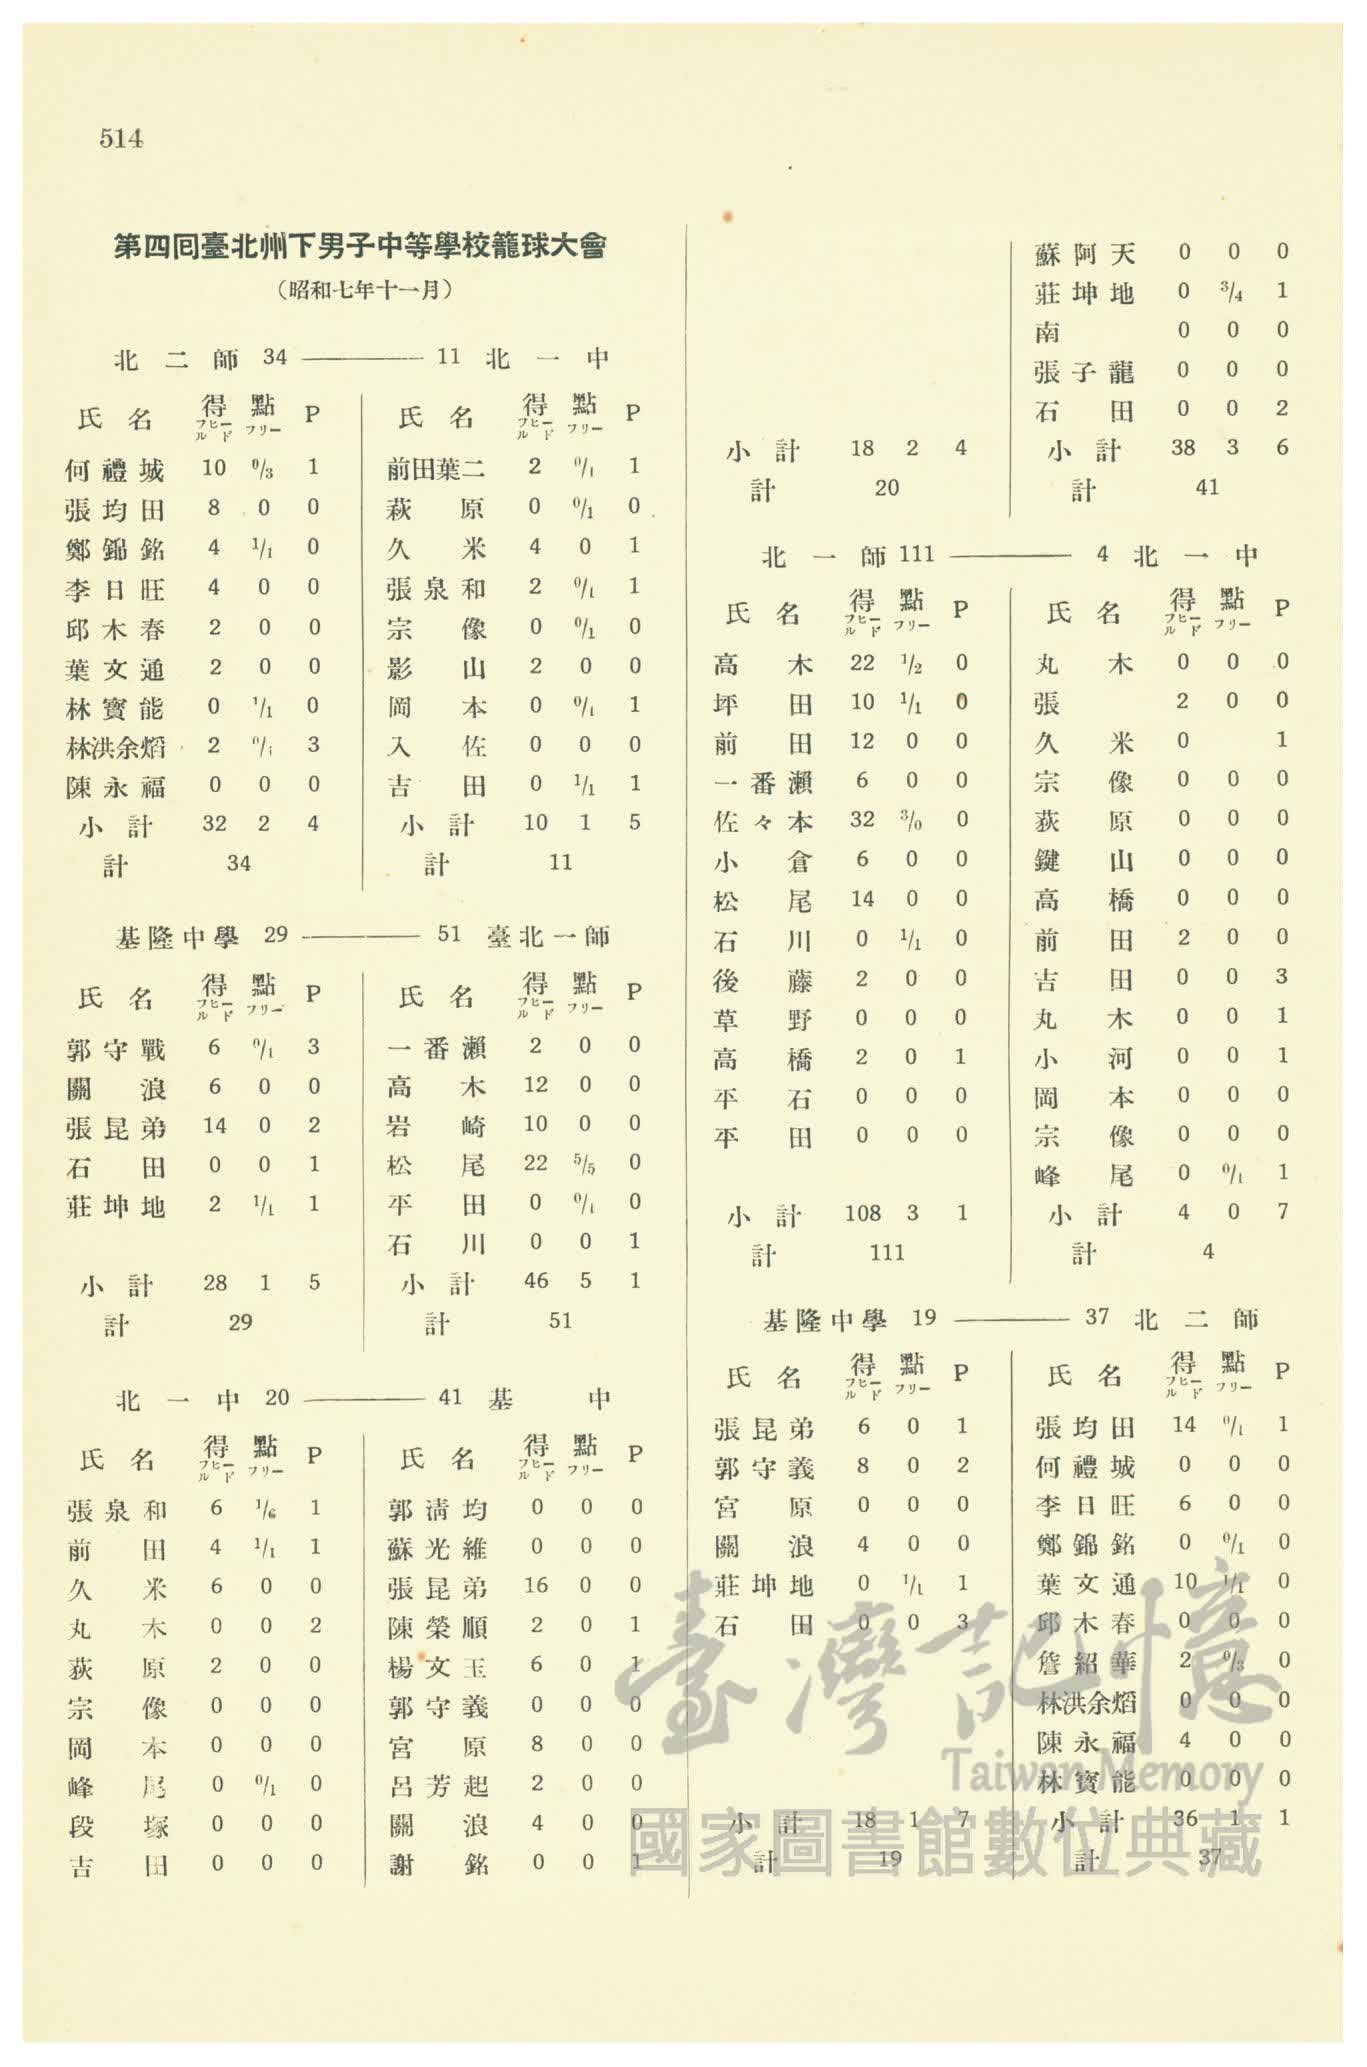 514
第四囘臺北州下男子中等學校籠球大會
（昭和七年十一月）
北二師 34 ——— 11 北一中
氏名 得點 P 氏名 得點 P
フヒールド フリー フヒールド フリー
何禮城 10 0/3 1 前田葉二 2 0/1 1
張均田 8 0 0 萩原 0 0/1 0
鄭錦銘 4 1/1 0 久米 4 0 1
李日旺 4 0 0 張泉和 2 0/1 1
邱木春 2 0 0 宗像 0 0/1 0
葉文通 2 0 0 影山 2 0 0
林寳能 0 1/1 0 岡本 0 0/1 1
林洪余熖 2 0/1 3 入佐 0 0 0
陳永福 0 0 0 吉田 0 1/1 1
小計 32 2 4 小計 10 1 5
計 34 計 11
基隆中學 29 ——— 51 臺北一師
氏名 得點 P 氏名 得點 P
フヒールド フリー フヒールド フリー
郭守戰 6 0/1 3 一番瀨 2 0 0
關浪 6 0 0 高木 12 0 0
張昆弟 14 0 2 岩崎 10 0 0
石田 0 0 1 松尾 22 5/5 0
莊坤地 2 1/1 1 平田 0 0/1 0
石川 0 0 1
小計 28 1 5 小計 46 5 1
計 29 計 51
北一中 20 ——— 41 基中
氏名 得點 P 氏名 得點 P
フヒールド フリー フヒールド フリー
張泉和 6 1/6 1 郭淸均 0 0 0
前田 4 1/1 1 蘇光維 0 0 0
久米 6 0 0 張昆弟 16 0 0
丸木 0 0 2 陳榮順 2 0 1
荻原 2 0 0 楊文玉 6 0 1
宗像 0 0 0 郭守義 0 0 0
岡本 0 0 0 宮原 8 0 0
峰尾 0 0/1 0 呂芳起 2 0 0
段塚 0 0 0 關浪 4 0 0
吉田 0 0 0 謝銘 0 0 1
蘇阿天 0 0 0
莊坤地 0 3/4 1
南 0 0 0
張子龍 0 0 0
石田 0 0 2
小計 18 2 4 小計 38 3 6
計 20 計 41
北一師 111 ——— 4 北一中
氏名 得點 P 氏名 得點 P
フヒールド フリー フヒールド フリー
高木 22 1/2 0 丸木 0 0 0
坪田 10 1/1 0 張 2 0 0
前田 12 0 0 久米 0 1
一番瀨 6 0 0 宗像 0 0 0
佐々本 32 3/0 0 荻原 0 0 0
小倉 6 0 0 鍵山 0 0 0
松尾 14 0 0 高橋 0 0 0
石川 0 1/1 0 前田 2 0 0
後藤 2 0 0 吉田 0 0 3
草野 0 0 0 丸木 0 0 1
高橋 2 0 1 小河 0 0 1
平石 0 0 0 岡本 0 0 0
平田 0 0 0 宗像 0 0 0
峰尾 0 0/1 1
小計 108 3 1 小計 4 0 7
計 111 計 4
基隆中學 19 ——— 37 北二師
氏名 得點 P 氏名 得點 P
フヒールド フリー フヒールド フリー
張昆弟 6 0 1 張均田 14 0/1 1
郭守義 8 0 2 何禮城 0 0 0
宮原 0 0 0 李日旺 6 0 0
關浪 4 0 0 鄭錦銘 0 0/1 0
莊坤地 0 1/1 1 葉文通 10 1/1 0
石田 0 0 3 邱木春 0 0 0
詹紹華 2 0/3 0
林洪余熖 0 0 0
陳永福 4 0 0
林寳能 0 0 0
小計 18 1 7 小計 36 1 1
計 19 計 37
臺灣記憶
Taiwan Memory
國家圖書館數位典藏